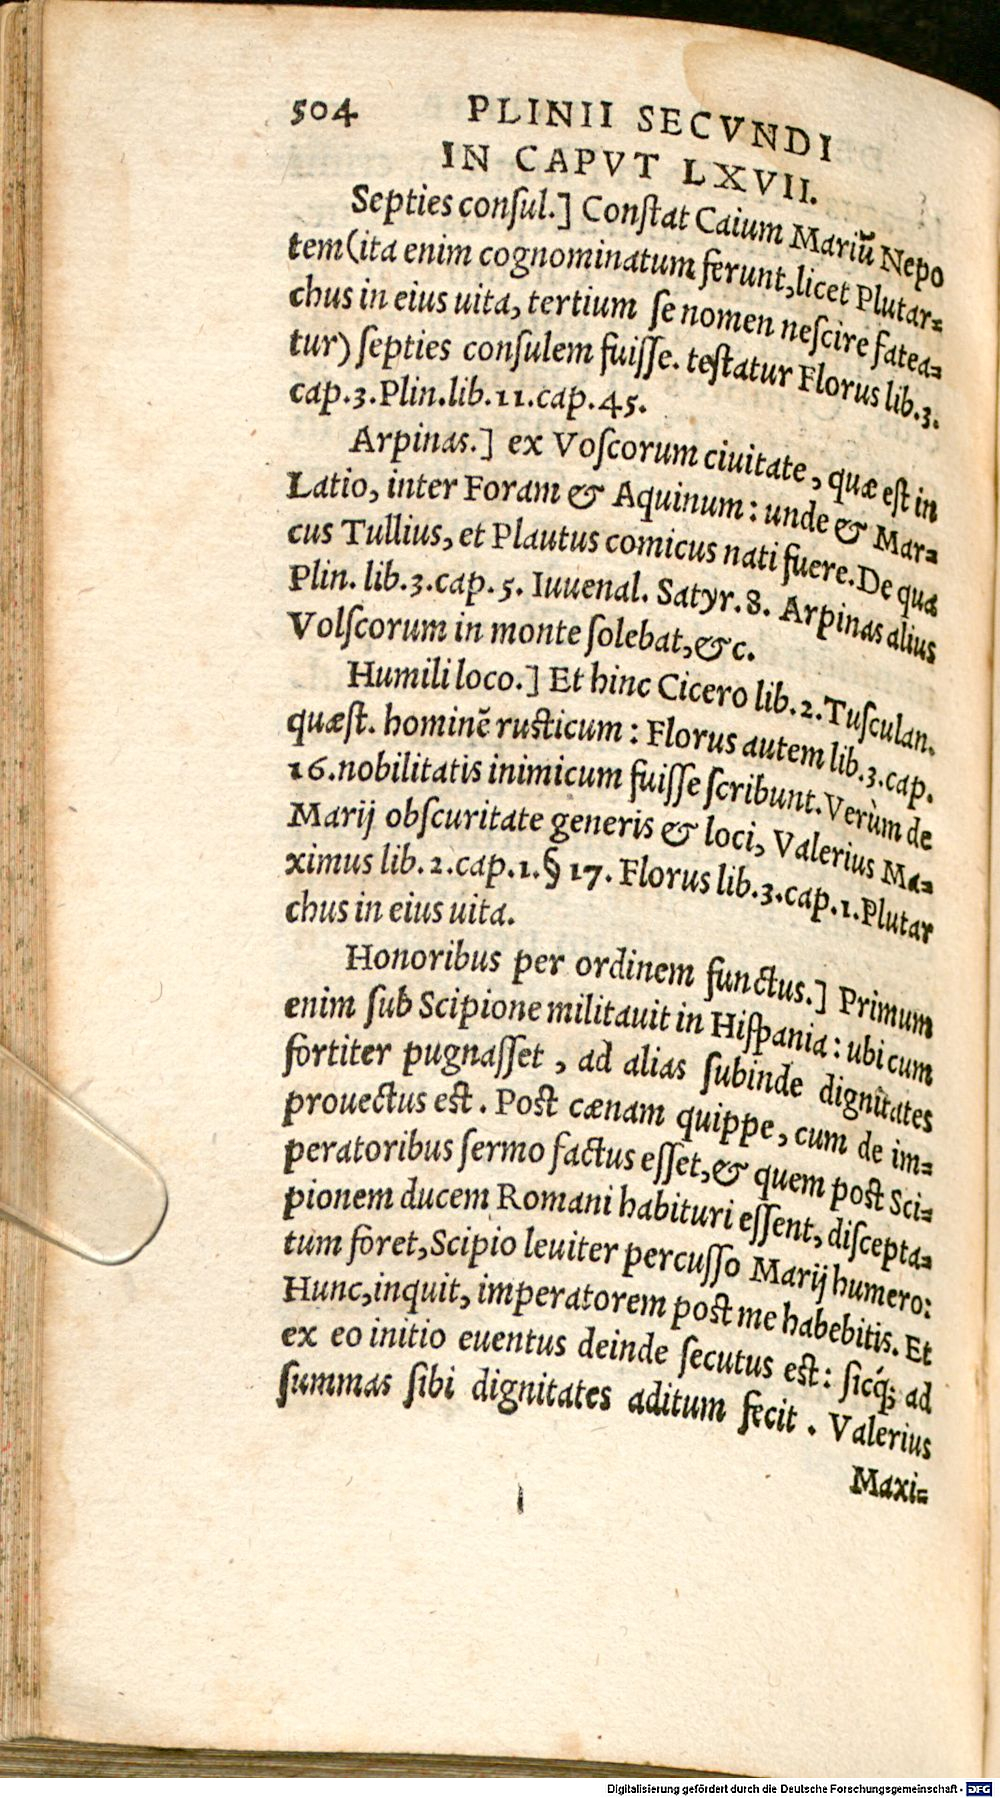 504 PLINII SECVNDI
IN CAPVT LXVII.
Septies conſul.] Conſtat Caium Mariũ Nepo
tem(ita enim cognominatum ferunt,licet Plutar=
chus in eius uita, tertium ſe nomen neſcire fatea=
tur) ſepties conſulem fuiſſe. teſtatur Florus lib.3.
cap.3.Plin.lib.11.cap.45.
Arpinas.] ex Voſcorum ciuitate, quæ eſt in
Latio, inter Foram & Aquinum: unde & Mar=
cus Tullius, et Plautus comicus nati fuere.De qua
Plin. lib.3.cap.5. Iuuenal. Satyr.8. Arpinas alius
Volſcorum in monte ſolebat,&c.
Humili loco.] Et hinc Cicero lib.2.Tuſculan.
quæſt. hominẽ ruſticum: Florus autem lib.3.cap.
16.nobilitatis inimicum fuiſſe ſcribunt.Verùm de
Marij obſcuritate generis & loci, Valerius Ma=
ximus lib.2.cap.1.§ 17. Florus lib.3.cap.1.Plutar
chus in eius uita.
Honoribus per ordinem functus.] Primum
enim ſub Scipione militauit in Hiſpania: ubi cum
fortiter pugnaſſet, ad alias ſubinde dignitates
prouectus eſt. Poſt cænam quippe, cum de im=
peratoribus ſermo factus eſſet,& quem poſt Sci=
pionem ducem Romani habituri eſſent, diſcepta=
tum foret,Scipio leuiter percuſſo Marij humero:
Hunc,inquit, imperatorem poſt me habebitis. Et
ex eo initio euentus deinde ſecutus eſt: ſicq́; ad
ſummas ſibi dignitates aditum fecit. Valerius
Maxi=
Digitalisierung gefördert durch die Deutsche Forschungsgemeinschaft - DFG